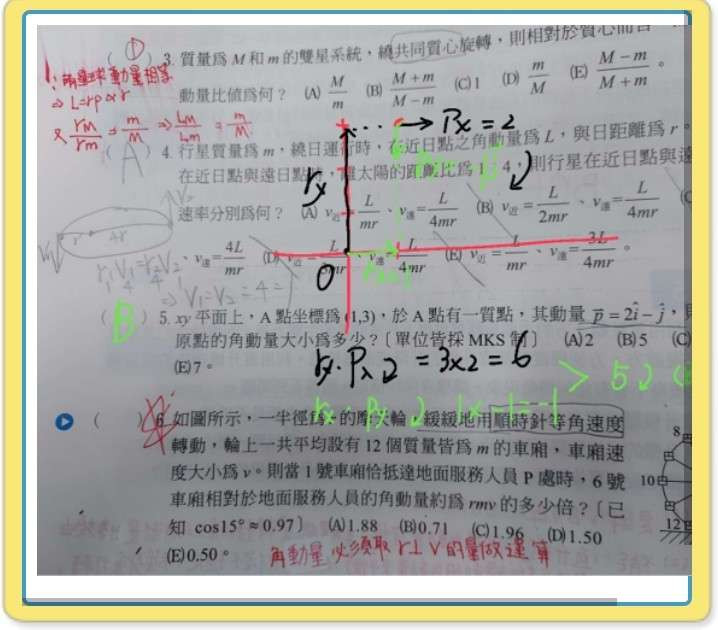 ( ① ) 3. 質量為 M 和 m 的雙星系統，繞共同質心旋轉，則相對於質心而言
動量比值為何？ (A) M/m (B) M+m/M−m (C) 1 (D) m/M (E) M−m/M+m 。
動量相等
⇒ L=rp∝r
rM/rm = m/M ⇒ LM/Lm = m/M
→ Px = 2
ry
( A ) 4. 行星質量為 m，繞日運行時，在近日點之角動量為 L，與日距離為 r。
在近日點與遠日點時，離太陽的距離比為 1：4，則行星在近日點與遠
速率分別為何？ (A) v近 = L/mr、v遠 = L/4mr (B) v近 = L/2mr、v遠 = L/4mr
v遠 = 4L/mr (D) v近 = L/3mr、v遠 = L/4mr (E) v近 = L/mr、v遠 = 3L/4mr。
r 4r
V1
V2
r1V1=r2V2
⇒ V1=V2 = 4=1
O
( B ) 5. xy 平面上，A 點坐標為 (1,3)，於 A 點有一質點，其動量 p = 2i − j，則
原點的角動量大小為多少？〔單位皆採 MKS 制〕 (A) 2 (B) 5 (C)
(E) 7。
ry·Px⇒ =3x2 =6
rx·Py⇒ 1x-1=-1 > 5⇒
( ) 6. 如圖所示，一半徑為 r 的摩天輪，緩緩地用順時針等角速度
轉動，輪上一共平均設有 12 個質量皆為 m 的車廂，車廂速
度大小為 v。則當 1 號車廂恰抵達地面服務人員 P 處時，6 號
車廂相對於地面服務人員的角動量約為 rmv 的多少倍？〔已
知 cos15° ≈ 0.97〕 (A) 1.88 (B) 0.71 (C) 1.96 (D) 1.50
(E) 0.50。
8
10
12
角動量必須取 r⊥v 的量做運算